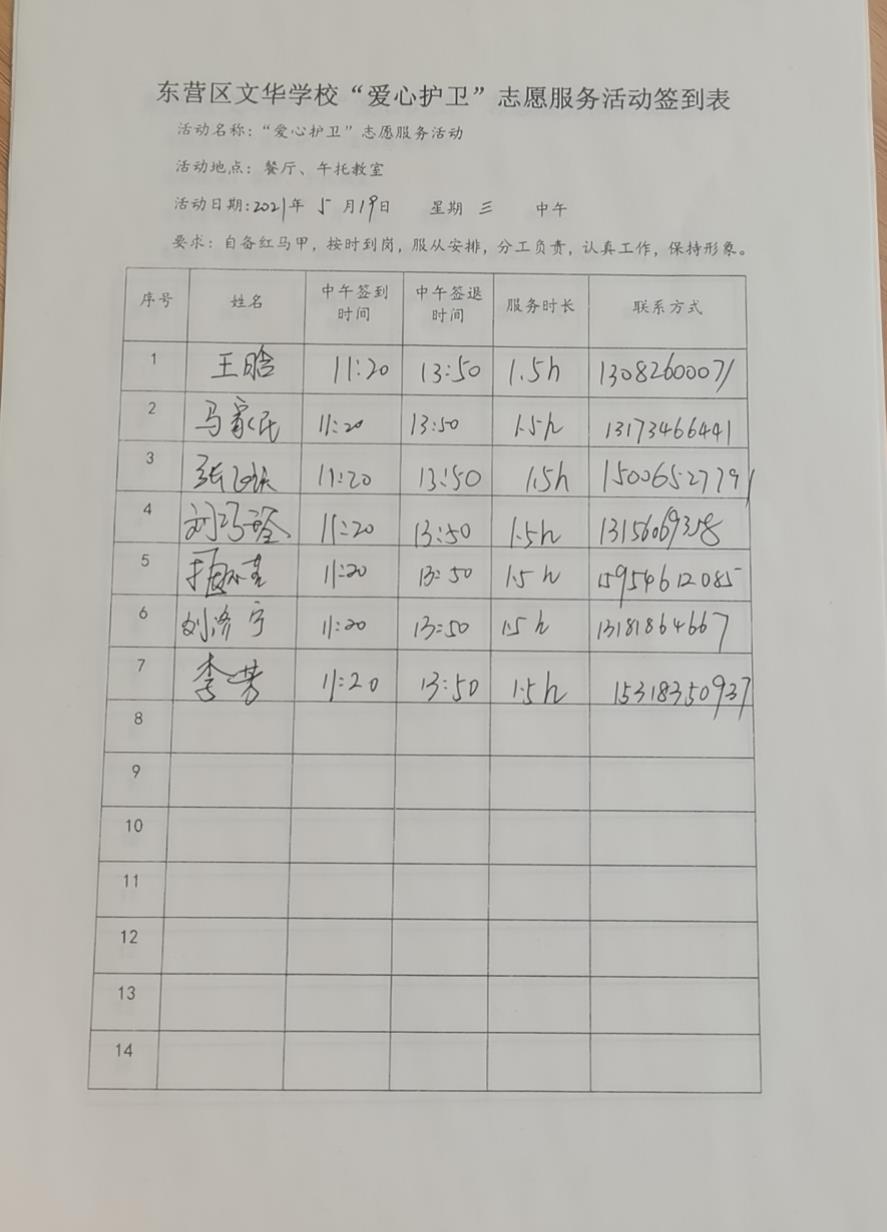 东营区文华学校“爱心护卫”志愿服务活动签到表
活动名称：“爱心护卫”志愿服务活动
活动地点：餐厅、午托教室
活动日期:2021年 5 月19日 星期 三 中午
要求：自备红马甲，按时到岗，服从安排，分工负责，认真工作，保持形象。
序号 姓名 中午签到时间 中午签退时间 服务时长 联系方式
1 王晗 11:20 13:50 1.5h 13082600071
2 马家民 11:20 13:50 1.5h 13173466441
3 11:20 13:50 1.5h 15006527791
4 11:20 13:50 1.5h 13156069358
5 11:20 13:50 1.5h 15954612085
6 刘济宁 11:20 13:50 1.5h 13181864667
7 李芳 11:20 13:50 1.5h 15318350937
8
9
10
11
12
13
14